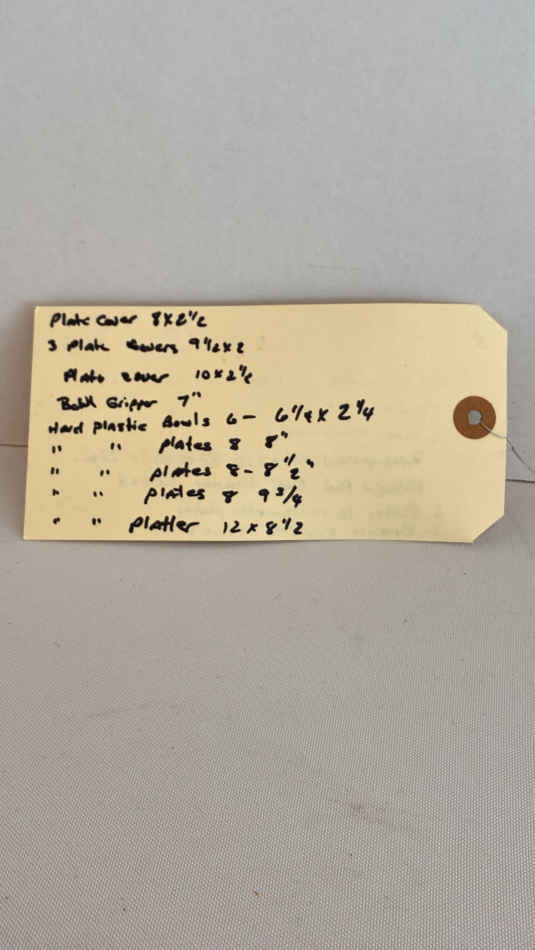 Plate Cover 8x2 1/2
3 Plate Covers 9 1/2 x 2
Plate cover 10 x 2 1/2
Gripper 7"
Hard Plastic Bowls 6 - 6 1/2 x 2 1/4
" " plates 8 8"
" " plates 8 - 8 1/2"
" " plates 8 9 3/4
" " Platter 12 x 8 1/2